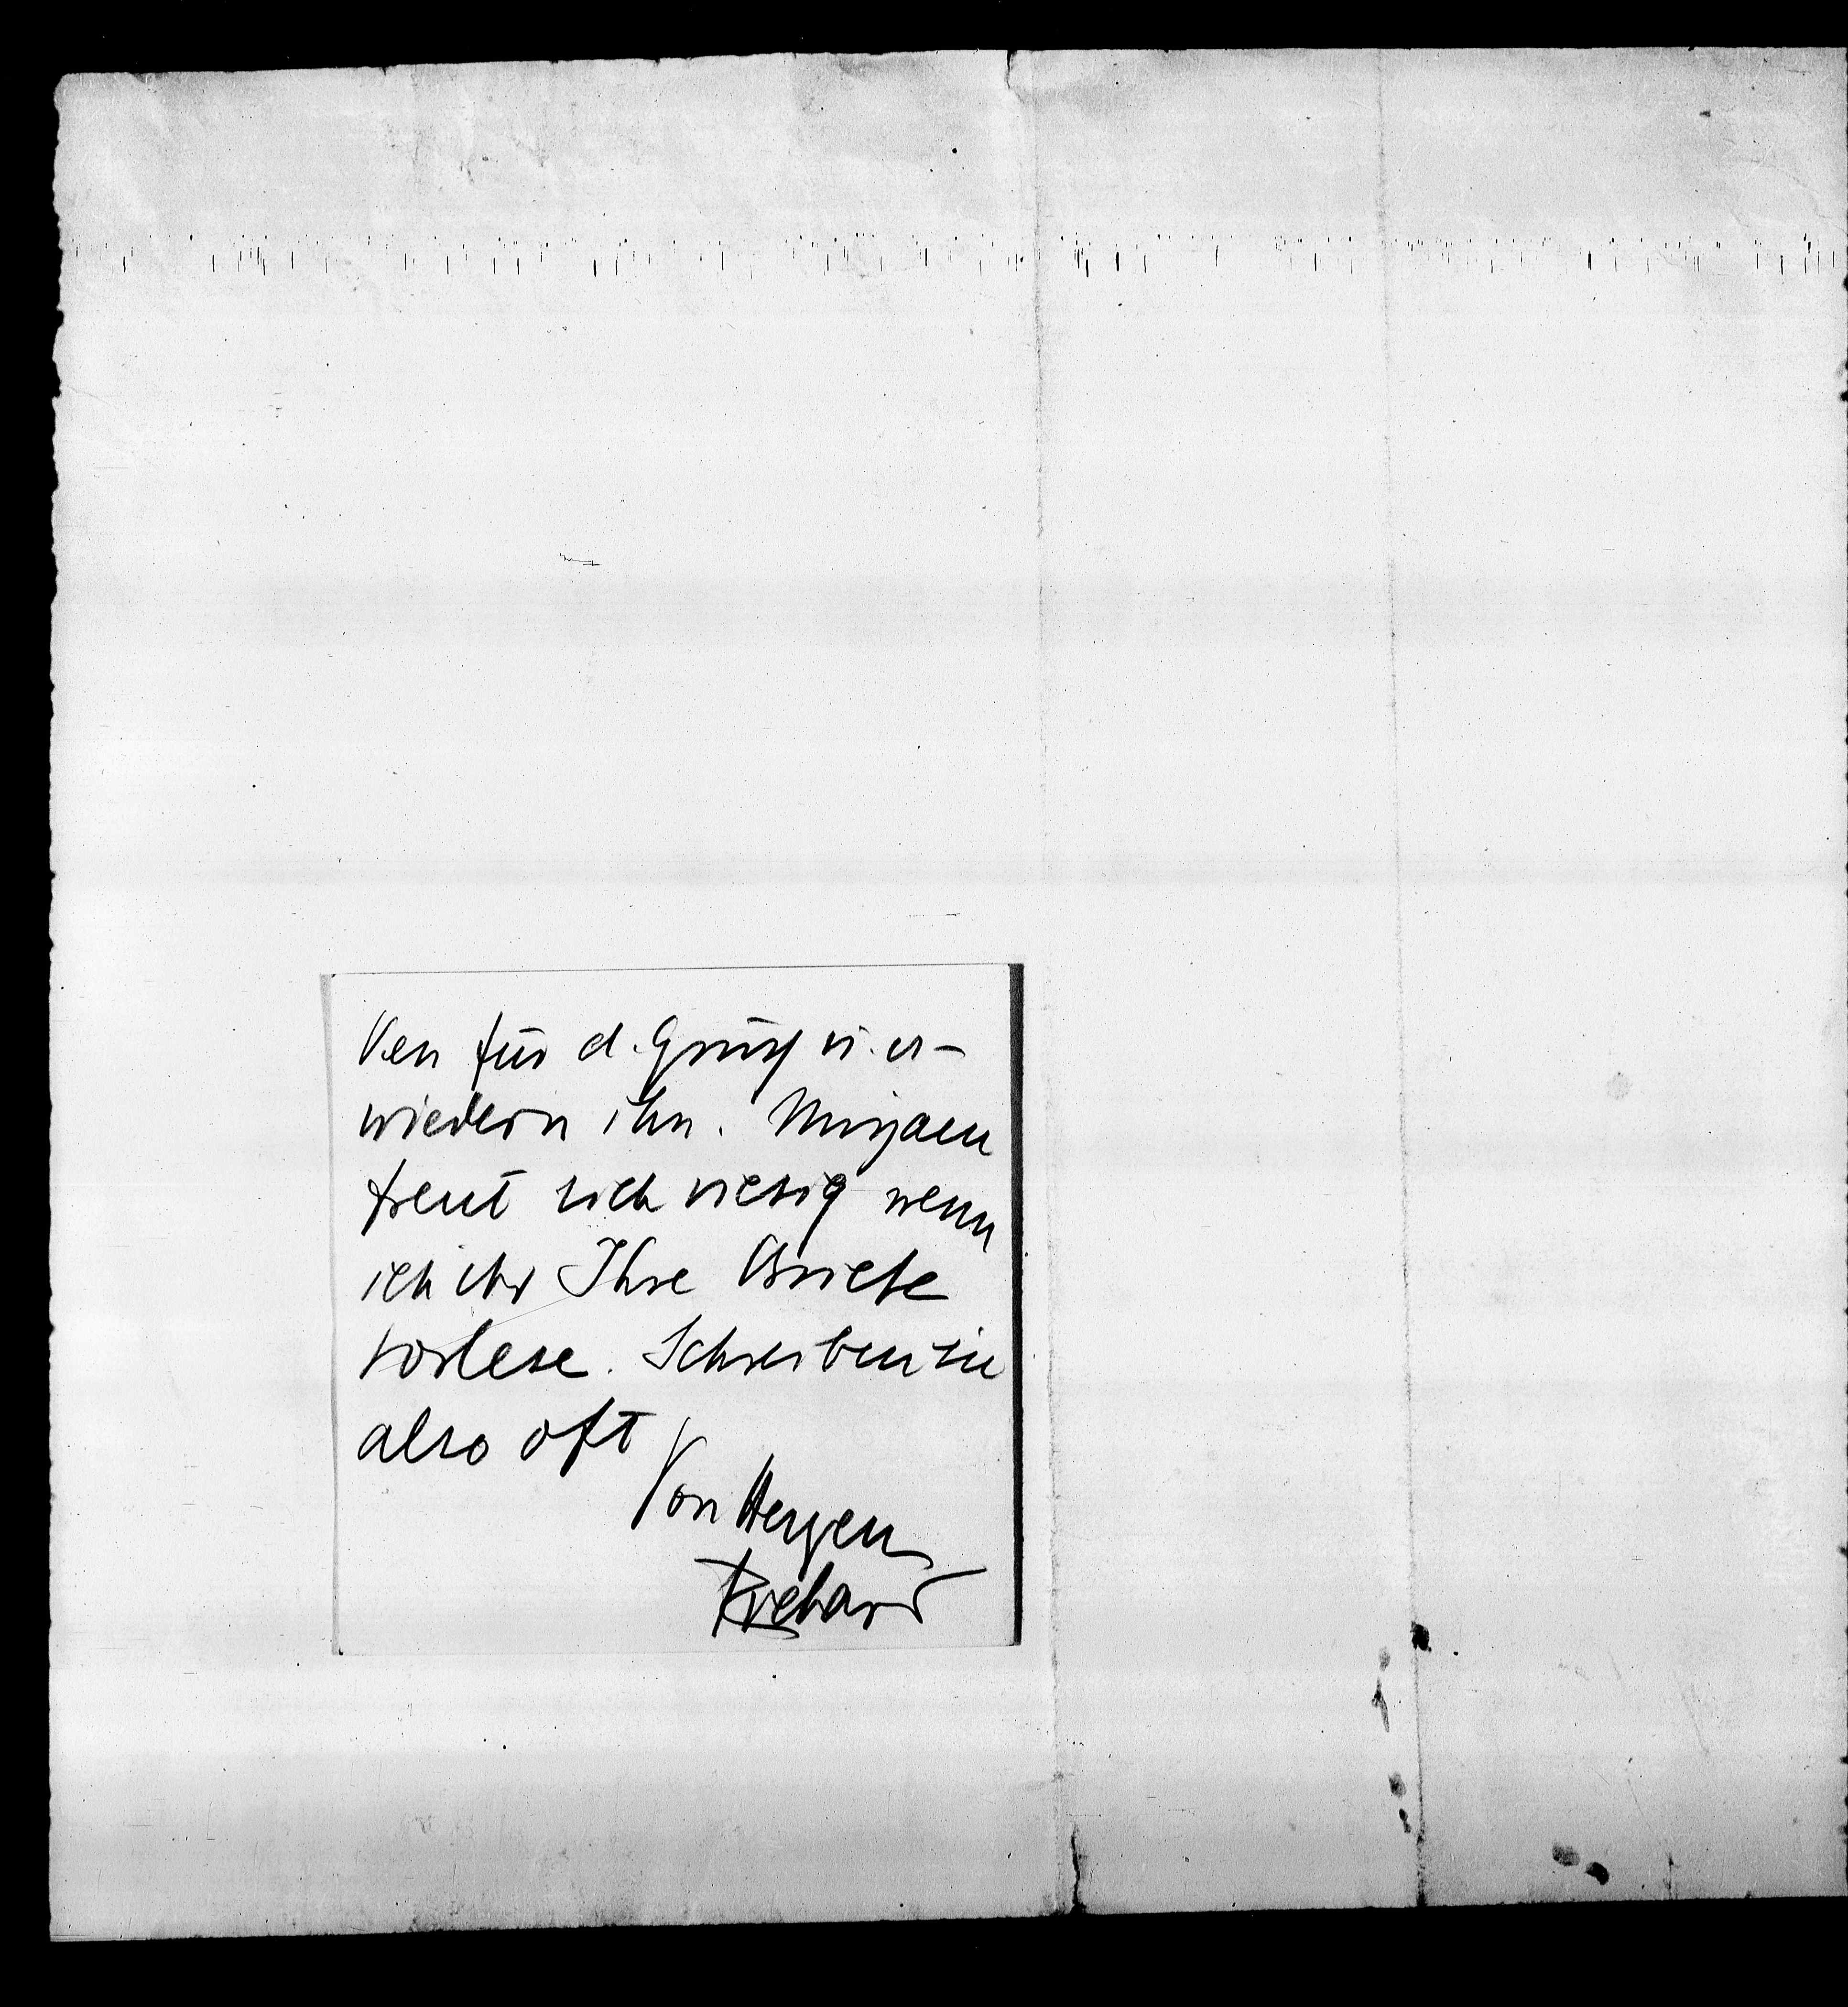 ken für d. Gruß u. er-
wiedern ihn. Mirjam
freut sich riesig wenn
ich ihr Ihre Briefe
vorlese. Schreiben sie
also oft
Von Herzen
Richard